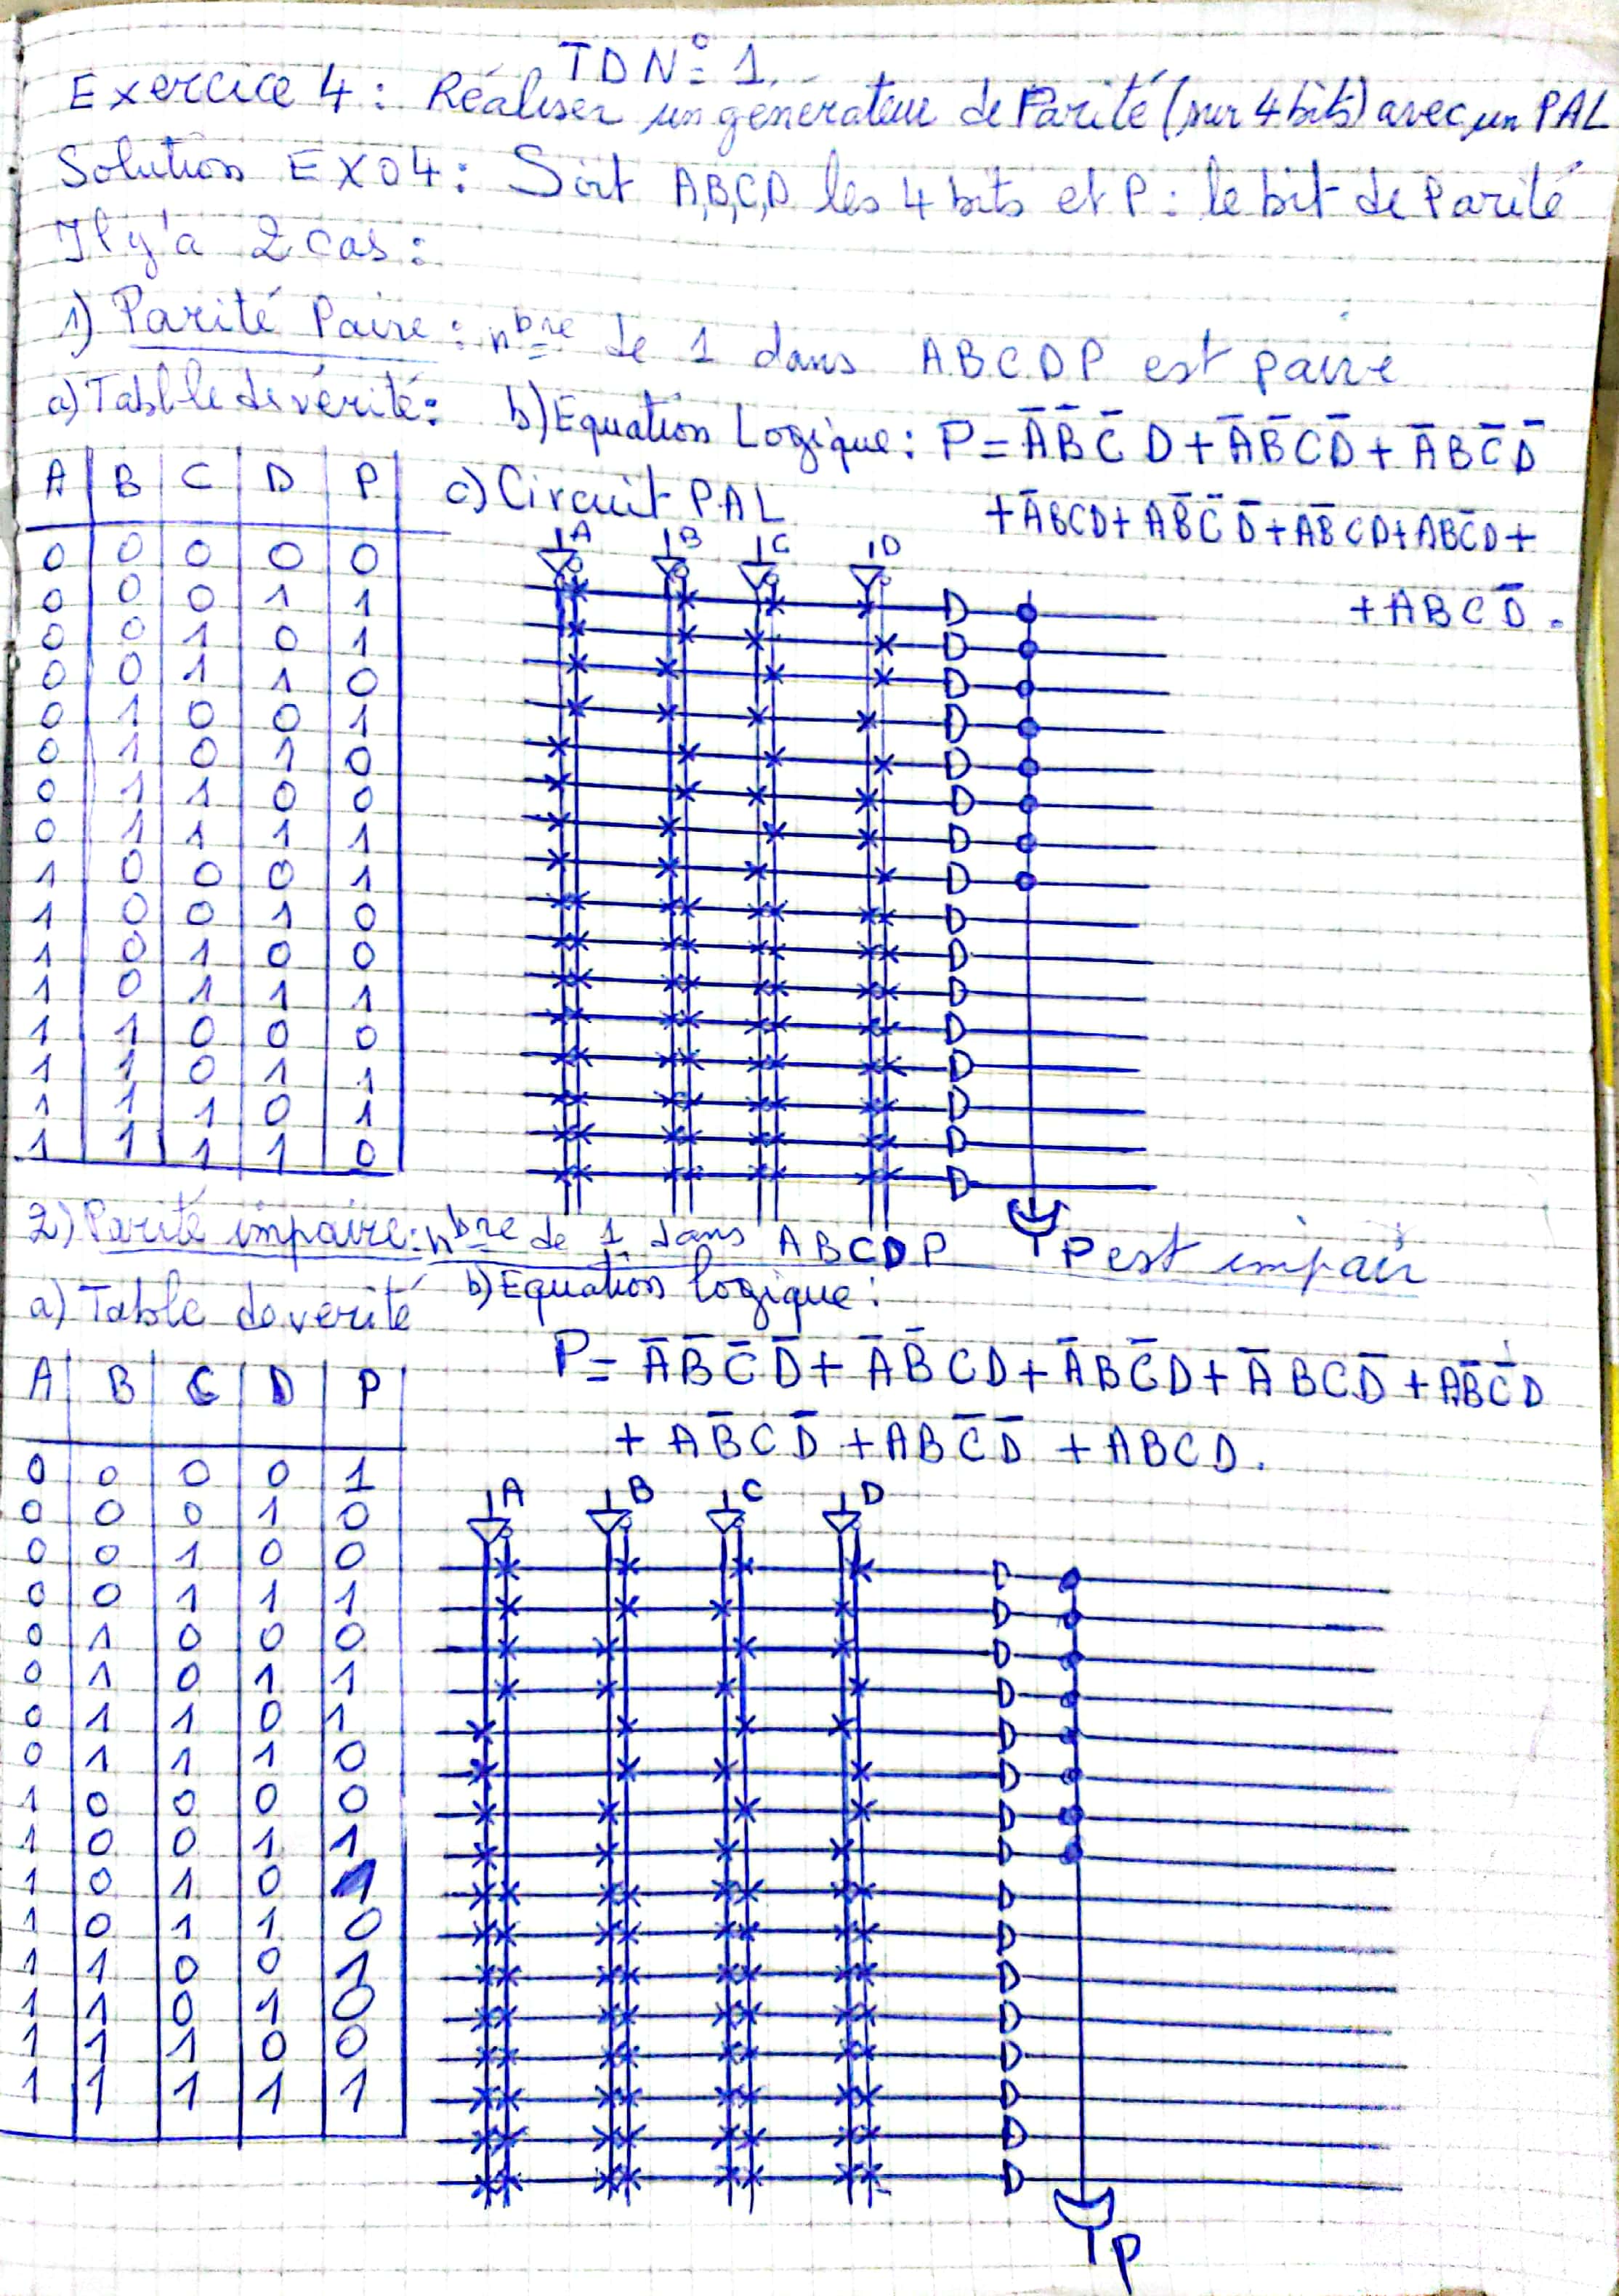 TD N° 1.
Exercice 4 : Réaliser un générateur de Parité (sur 4 bits) avec un PAL
Solution EXO4 : Soit A,B,C,D les 4 bits et P : le bit de Parité
Il y'a 2 cas :
1) Parité Paire : nbre de 1 dans ABCDP est paire
a) Tablle de vérité : b) Equation Logique : P = A̅ B̅ C̅ D + A̅ B̅ C D̅ + A̅ B C̅ D̅
+ A̅ B C D + A B̅ C̅ D̅ + A B̅ C D + A B C̅ D +
+ A B C D̅ .
c) Circuit PAL
A B C D
A B C D P
0 0 0 0 0
0 0 0 1 1
0 0 1 0 1
0 0 1 1 0
0 1 0 0 1
0 1 0 1 0
0 1 1 0 0
0 1 1 1 1
1 0 0 0 1
1 0 0 1 0
1 0 1 0 0
1 0 1 1 1
1 1 0 0 0
1 1 0 1 1
1 1 1 0 1
1 1 1 1 0
P
2) Parité impaire : nbre de 1 dans ABCDP est impair
a) Table de verité b) Equation logique :
P = A̅ B̅ C̅ D̅ + A̅ B̅ C D + A̅ B C̅ D + A̅ B C D̅ + A B̅ C̅ D
+ A B̅ C D̅ + A B C̅ D̅ + A B C D .
A B C D
A B C D P
0 0 0 0 1
0 0 0 1 0
0 0 1 0 0
0 0 1 1 1
0 1 0 0 0
0 1 0 1 1
0 1 1 0 1
0 1 1 1 0
1 0 0 0 0
1 0 0 1 1
1 0 1 0 1
1 0 1 1 0
1 1 0 0 1
1 1 0 1 0
1 1 1 0 0
1 1 1 1 1
P